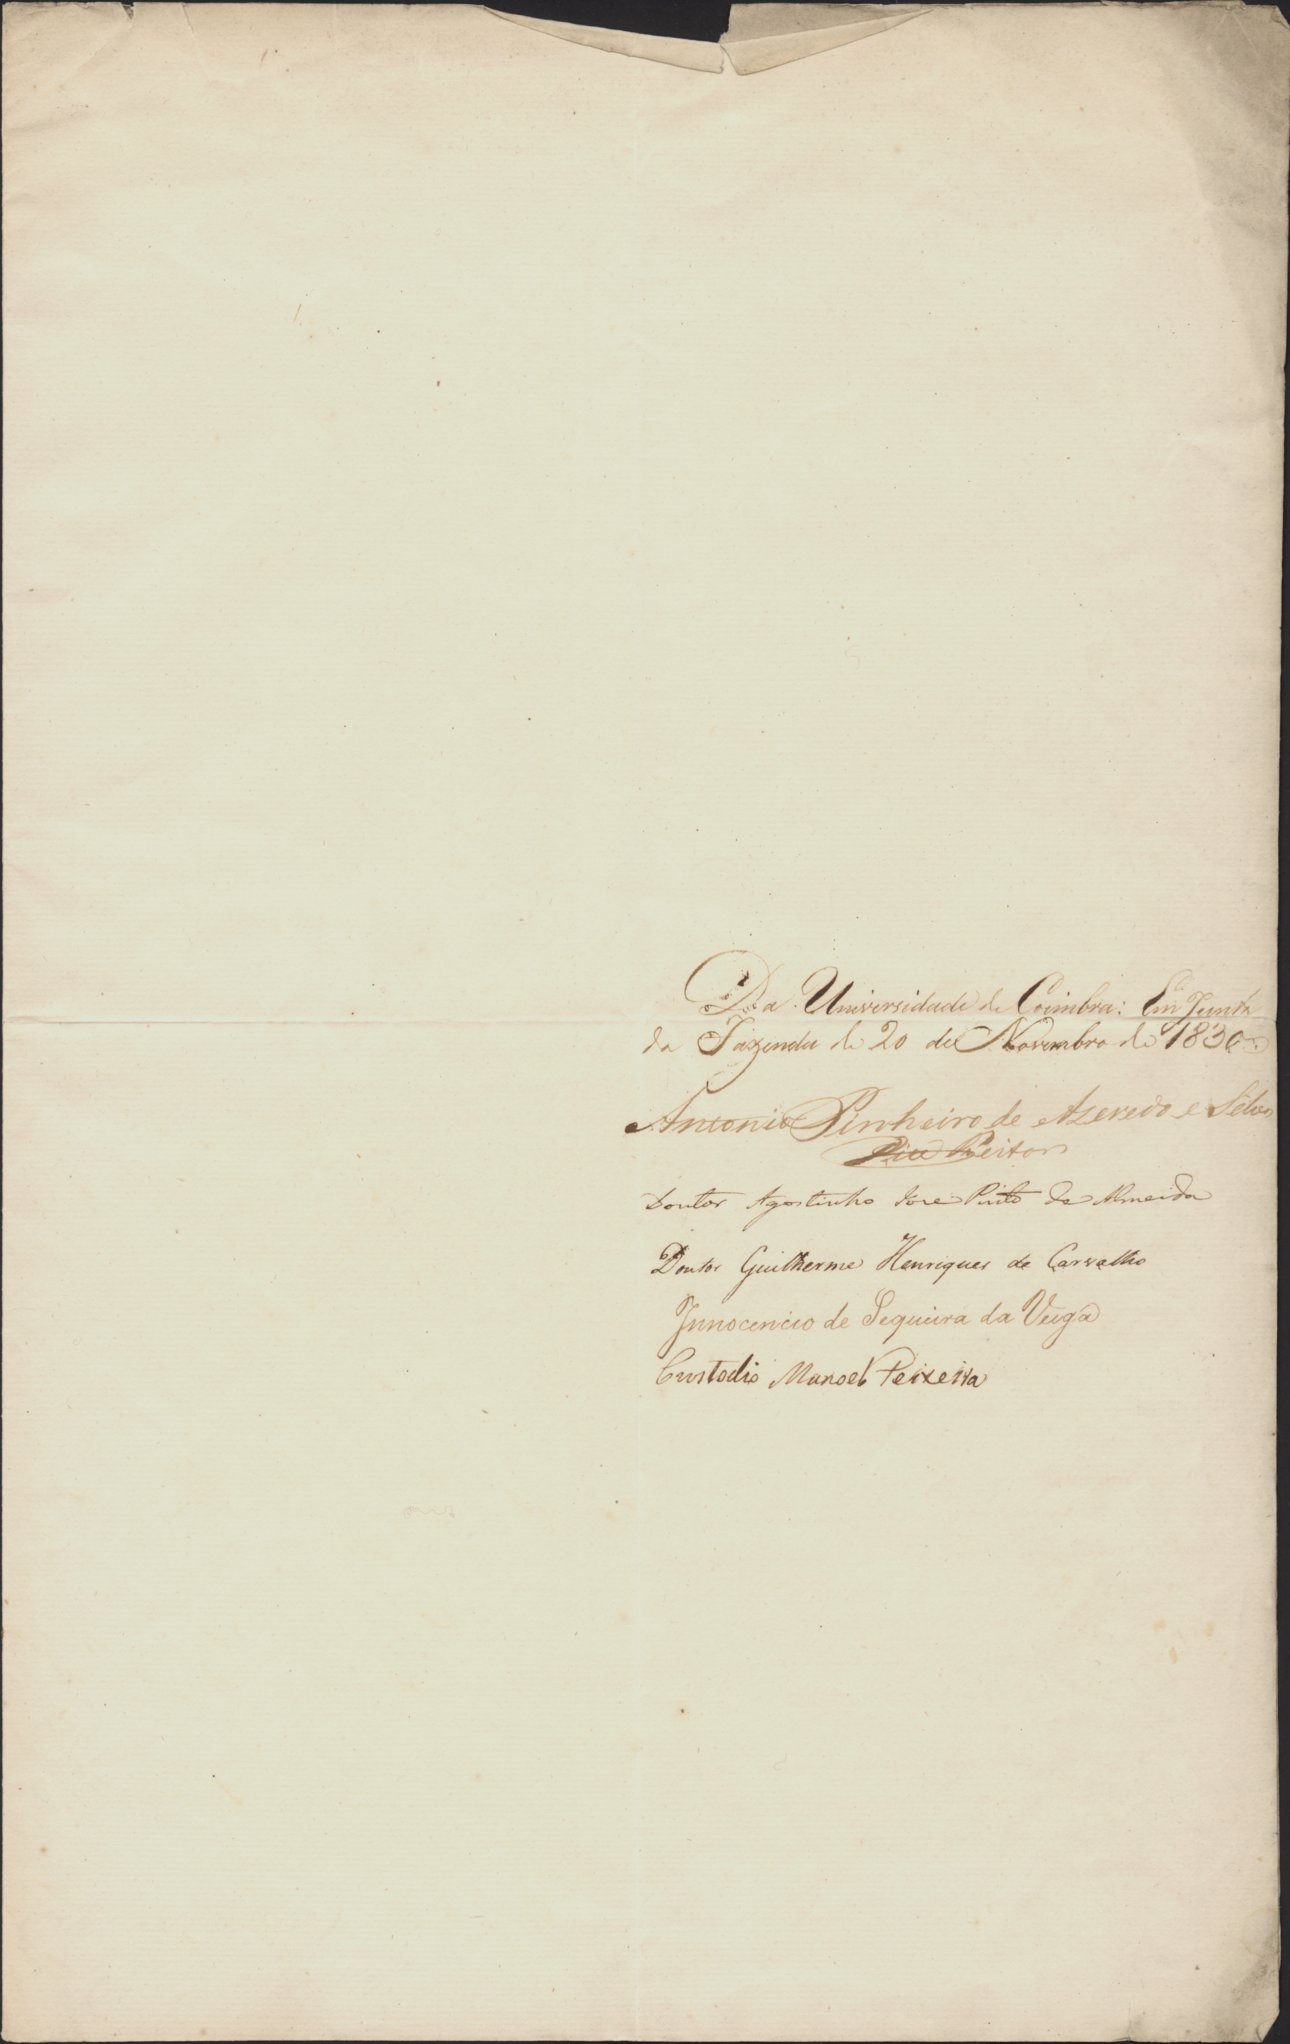 Da Universidade de Coimbra: Em Junta
da Fazenda de 20 de Novembro de 1830
Antonio Pinheiro de Azevedo e Silva
Vice Reitor
Doutor Agostinho Joze Pinto de Almeida
Doutor Guilherme Henriques de Carvalho
Innocencio de Sequeira da Veiga
Custodio Manoel Teixeira